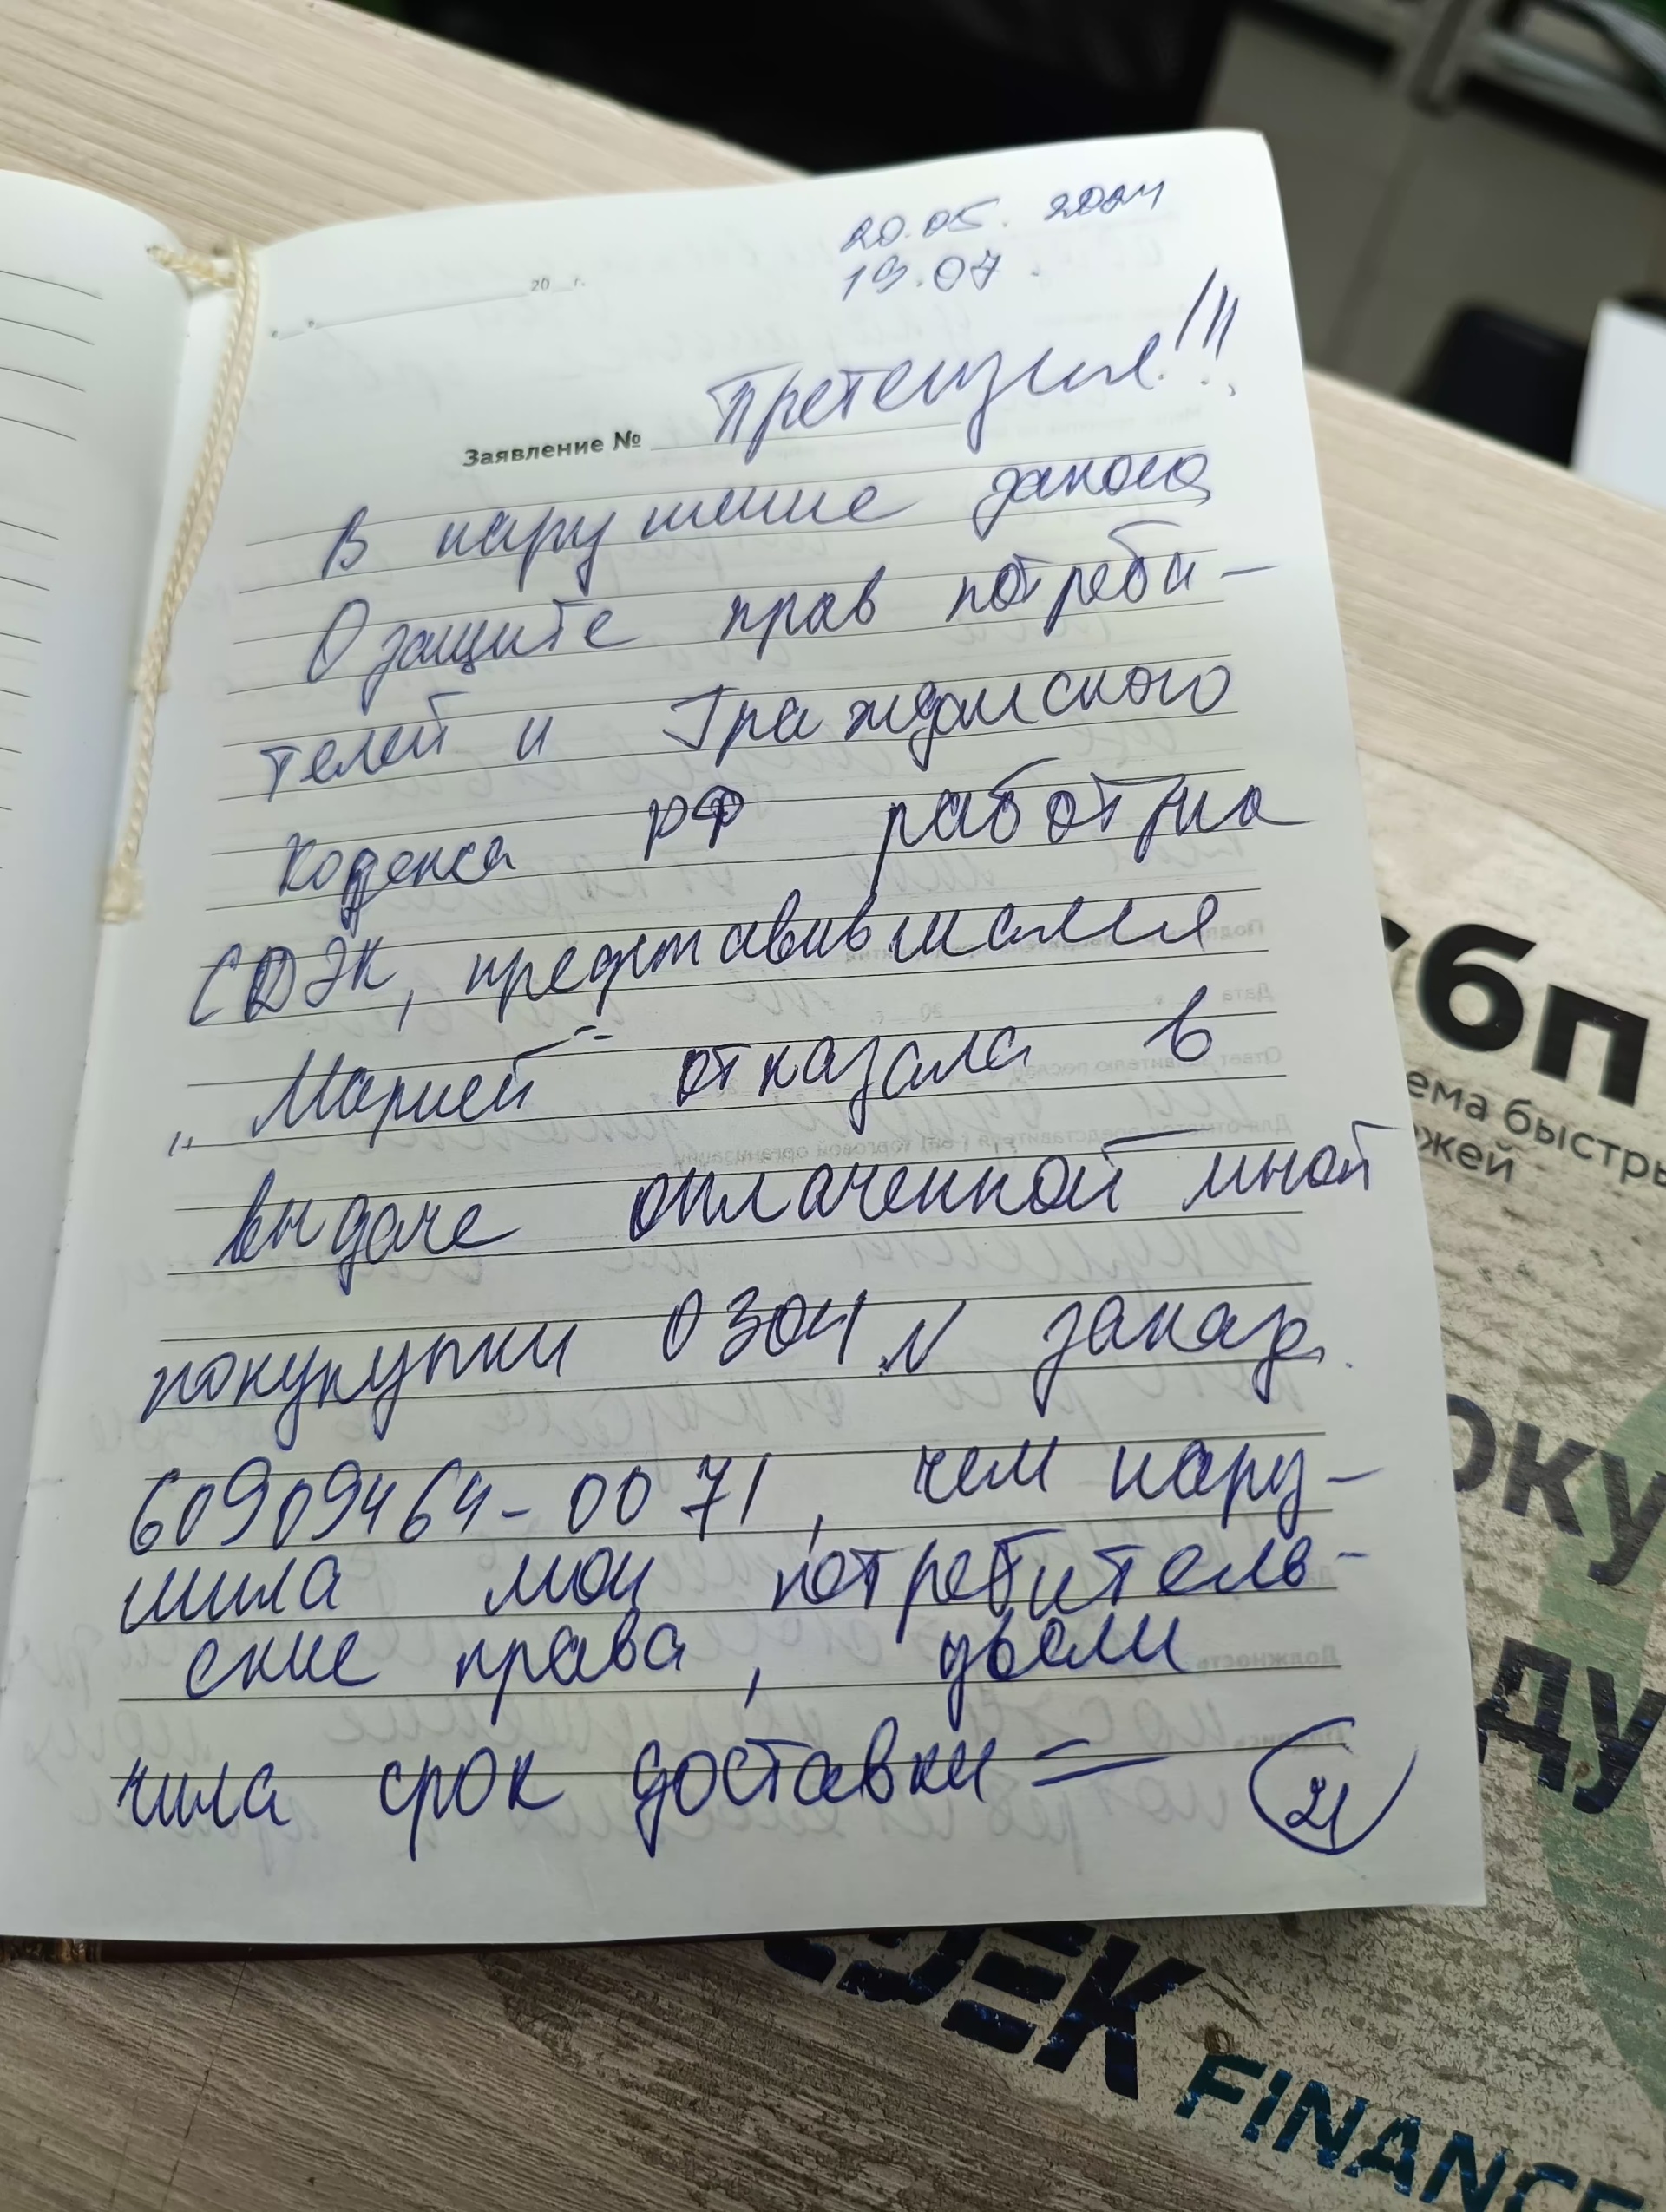 20.05. 2024
19.07
"__" ________ 20__г.
Претензия!!!
Заявление №
В нарушение закона
О защите прав потреби-
телей и Гражданского
кодекса РФ работница
СДЭК, представившаяся
„Марией" отказала в
выдаче оплаченной мной
покупки ОЗОН N заказ.
60909464-0071, чем нару-
шила мои потребитель-
ские права, увели
чила срок доставки =
21
сбп
ема быстры
жей
оку
ду
CDEK
FINANCE